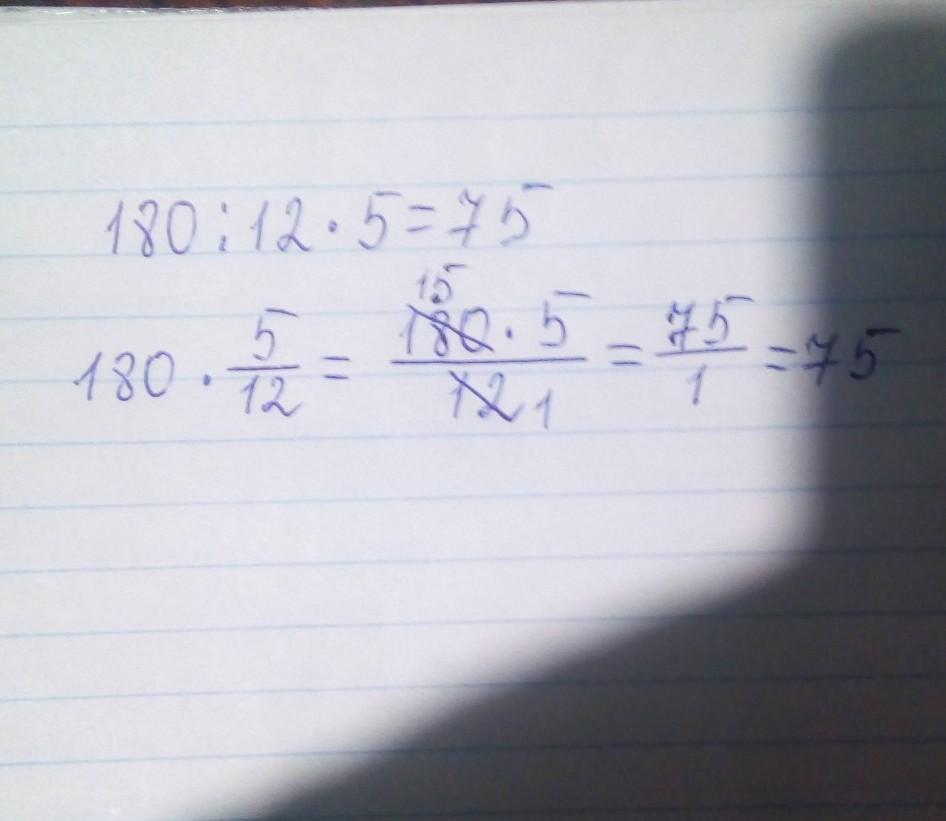 180:12·5=75
180 · 5/12 = 15 180 · 5 / 12 1 = 75/1 = 75